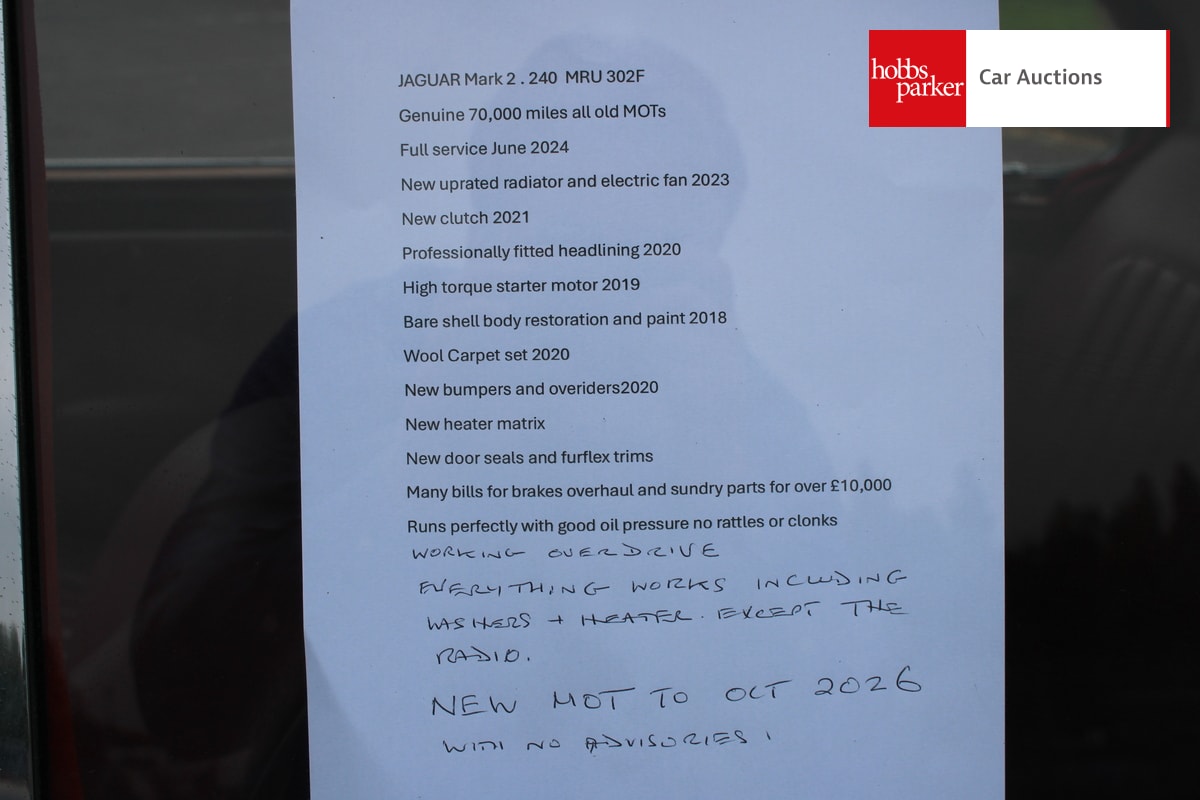 hobbs
parker
Car Auctions
JAGUAR Mark 2 . 240 MRU 302F
Genuine 70,000 miles all old MOTs
Full service June 2024
New uprated radiator and electric fan 2023
New clutch 2021
Professionally fitted headlining 2020
High torque starter motor 2019
Bare shell body restoration and paint 2018
Wool Carpet set 2020
New bumpers and overiders2020
New heater matrix
New door seals and furflex trims
Many bills for brakes overhaul and sundry parts for over £10,000
Runs perfectly with good oil pressure no rattles or clonks
WORKING OVERDRIVE
EVERYTHING WORKS INCLUDING
WASHERS + HEATER. EXCEPT THE
RADIO.
NEW MOT TO OCT 2026
WITH NO ADVISORIES !